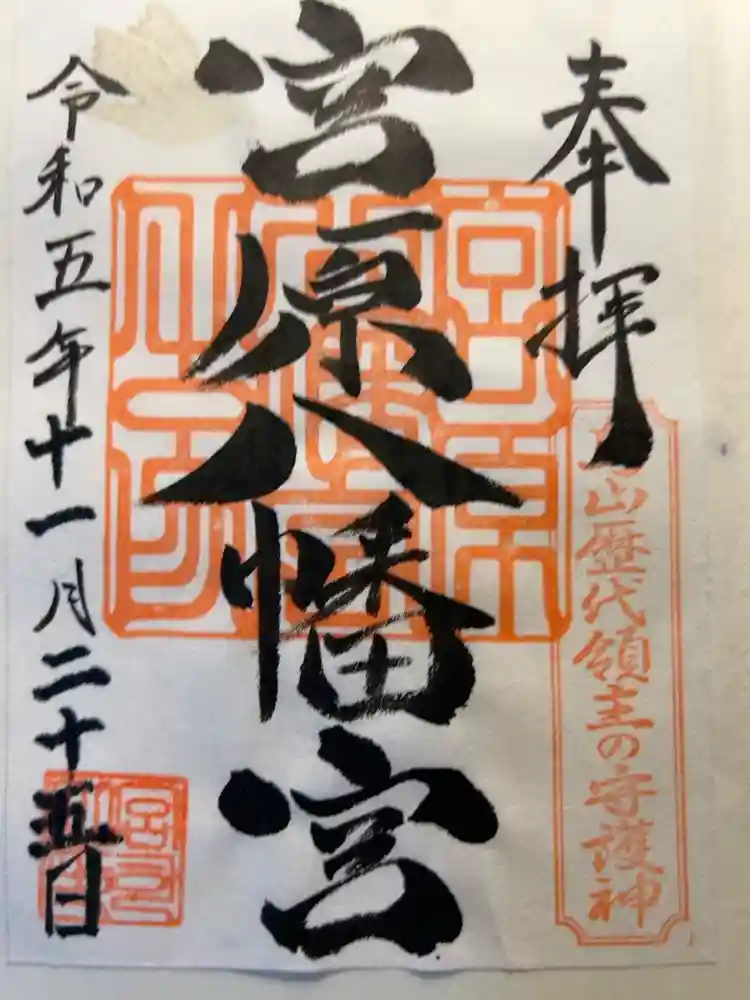 奉拝
山歴代領主の守護神
宮原八幡宮
令和五年十一月二十五日